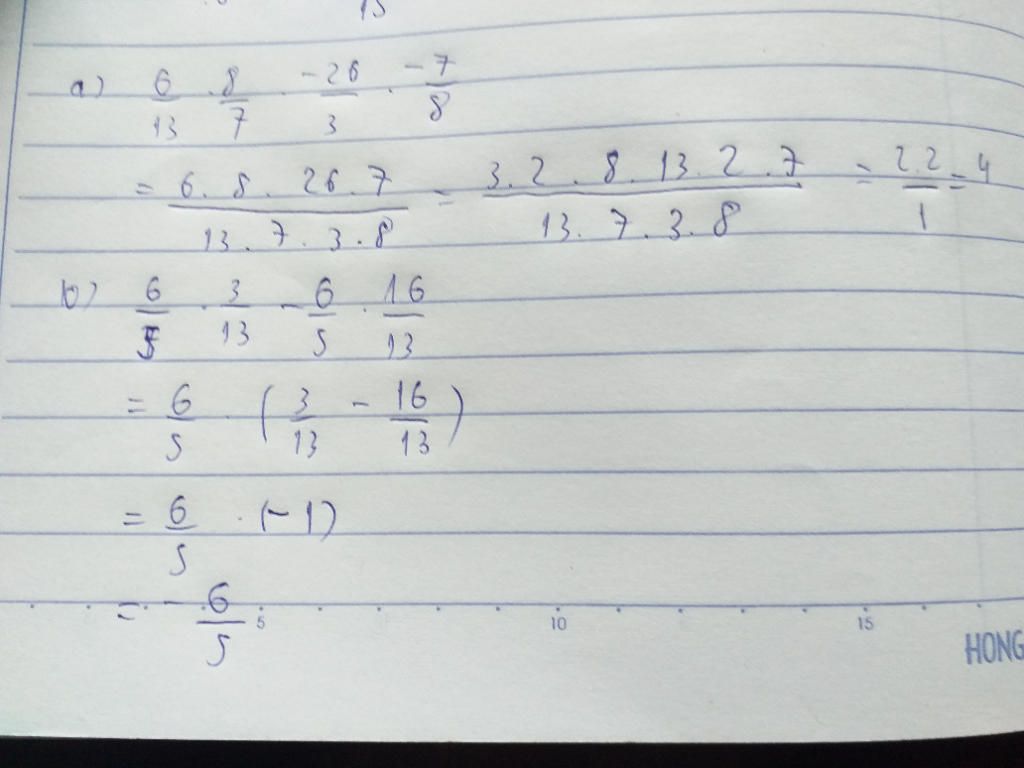 15
a) 6/13 . 8/7 . -26/3 . -7/8
= 6.8.26.7/13.7.3.8 = 3.2.8.13.2.7/13.7.3.8 = 2.2/1 = 4
b) 6/5 . 3/13 - 6/5 . 16/13
= 6/5 . (3/13 - 16/13)
= 6/5 . (-1)
= - 6/5
5 10 15
HONG